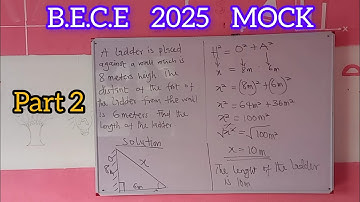 B.E.C.E 2025 MOCK
Part 2
A ladder is placed
against a wall which is
8 meters high. The
distance of the foot of
the ladder from the wall
is 6 meters. Find the
length of the ladder
Solution
x
8m
6m
H² = O² + A²
x 8m 6m
x² = (8m)² + (6m)²
x² = 64m² + 36m²
x² = 100m²
√x² = √100m²
x = 10m
The lenght of the ladder
is 10m